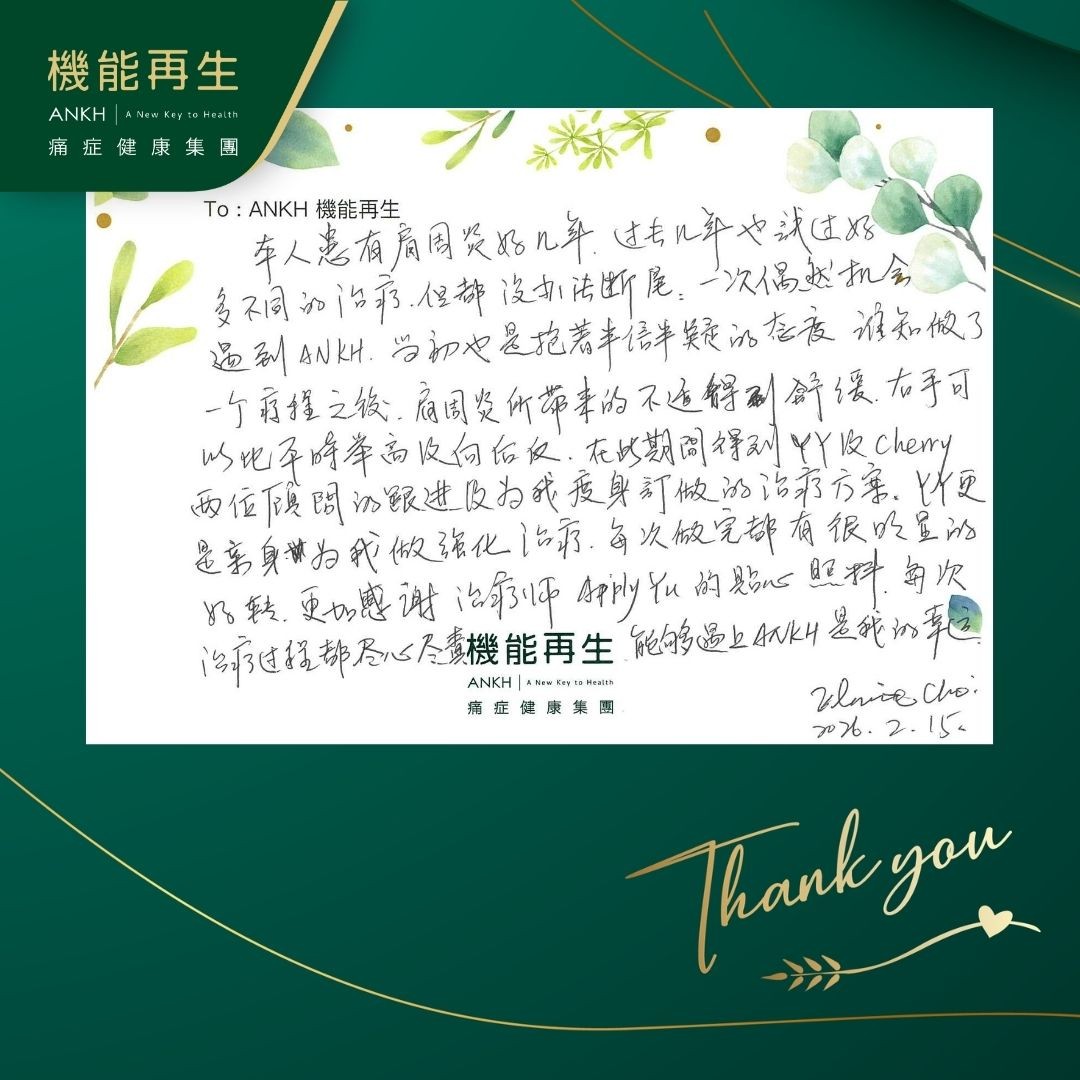 機能再生
ANKH | A New Key to Health
痛症健康集團
To : ANKH 機能再生
本人患有肩周炎好几年.过去几年也試过好
多不同的治疗.但都没办法断尾。一次偶然机会
遇到ANKH.当初也是抱著半信半疑的态度 谁知做了
一个疗程之後.肩周炎所带来的不适得到舒缓.右手可
以比平時举高及向后仅.在此期間得到YY及Cherry
两位顾問的跟进及为我度身訂做的治疗方案。YY更
是亲身为我做強化治疗.每次做完都有很明显的
好转.更加感谢治疗师 Yu的貼心照料.每次
治疗过程都尽心尽責 能够遇上ANKH是我的幸运
機能再生
ANKH | A New Key to Health
痛症健康集團
Choi.
2026.2.15.
Thank you